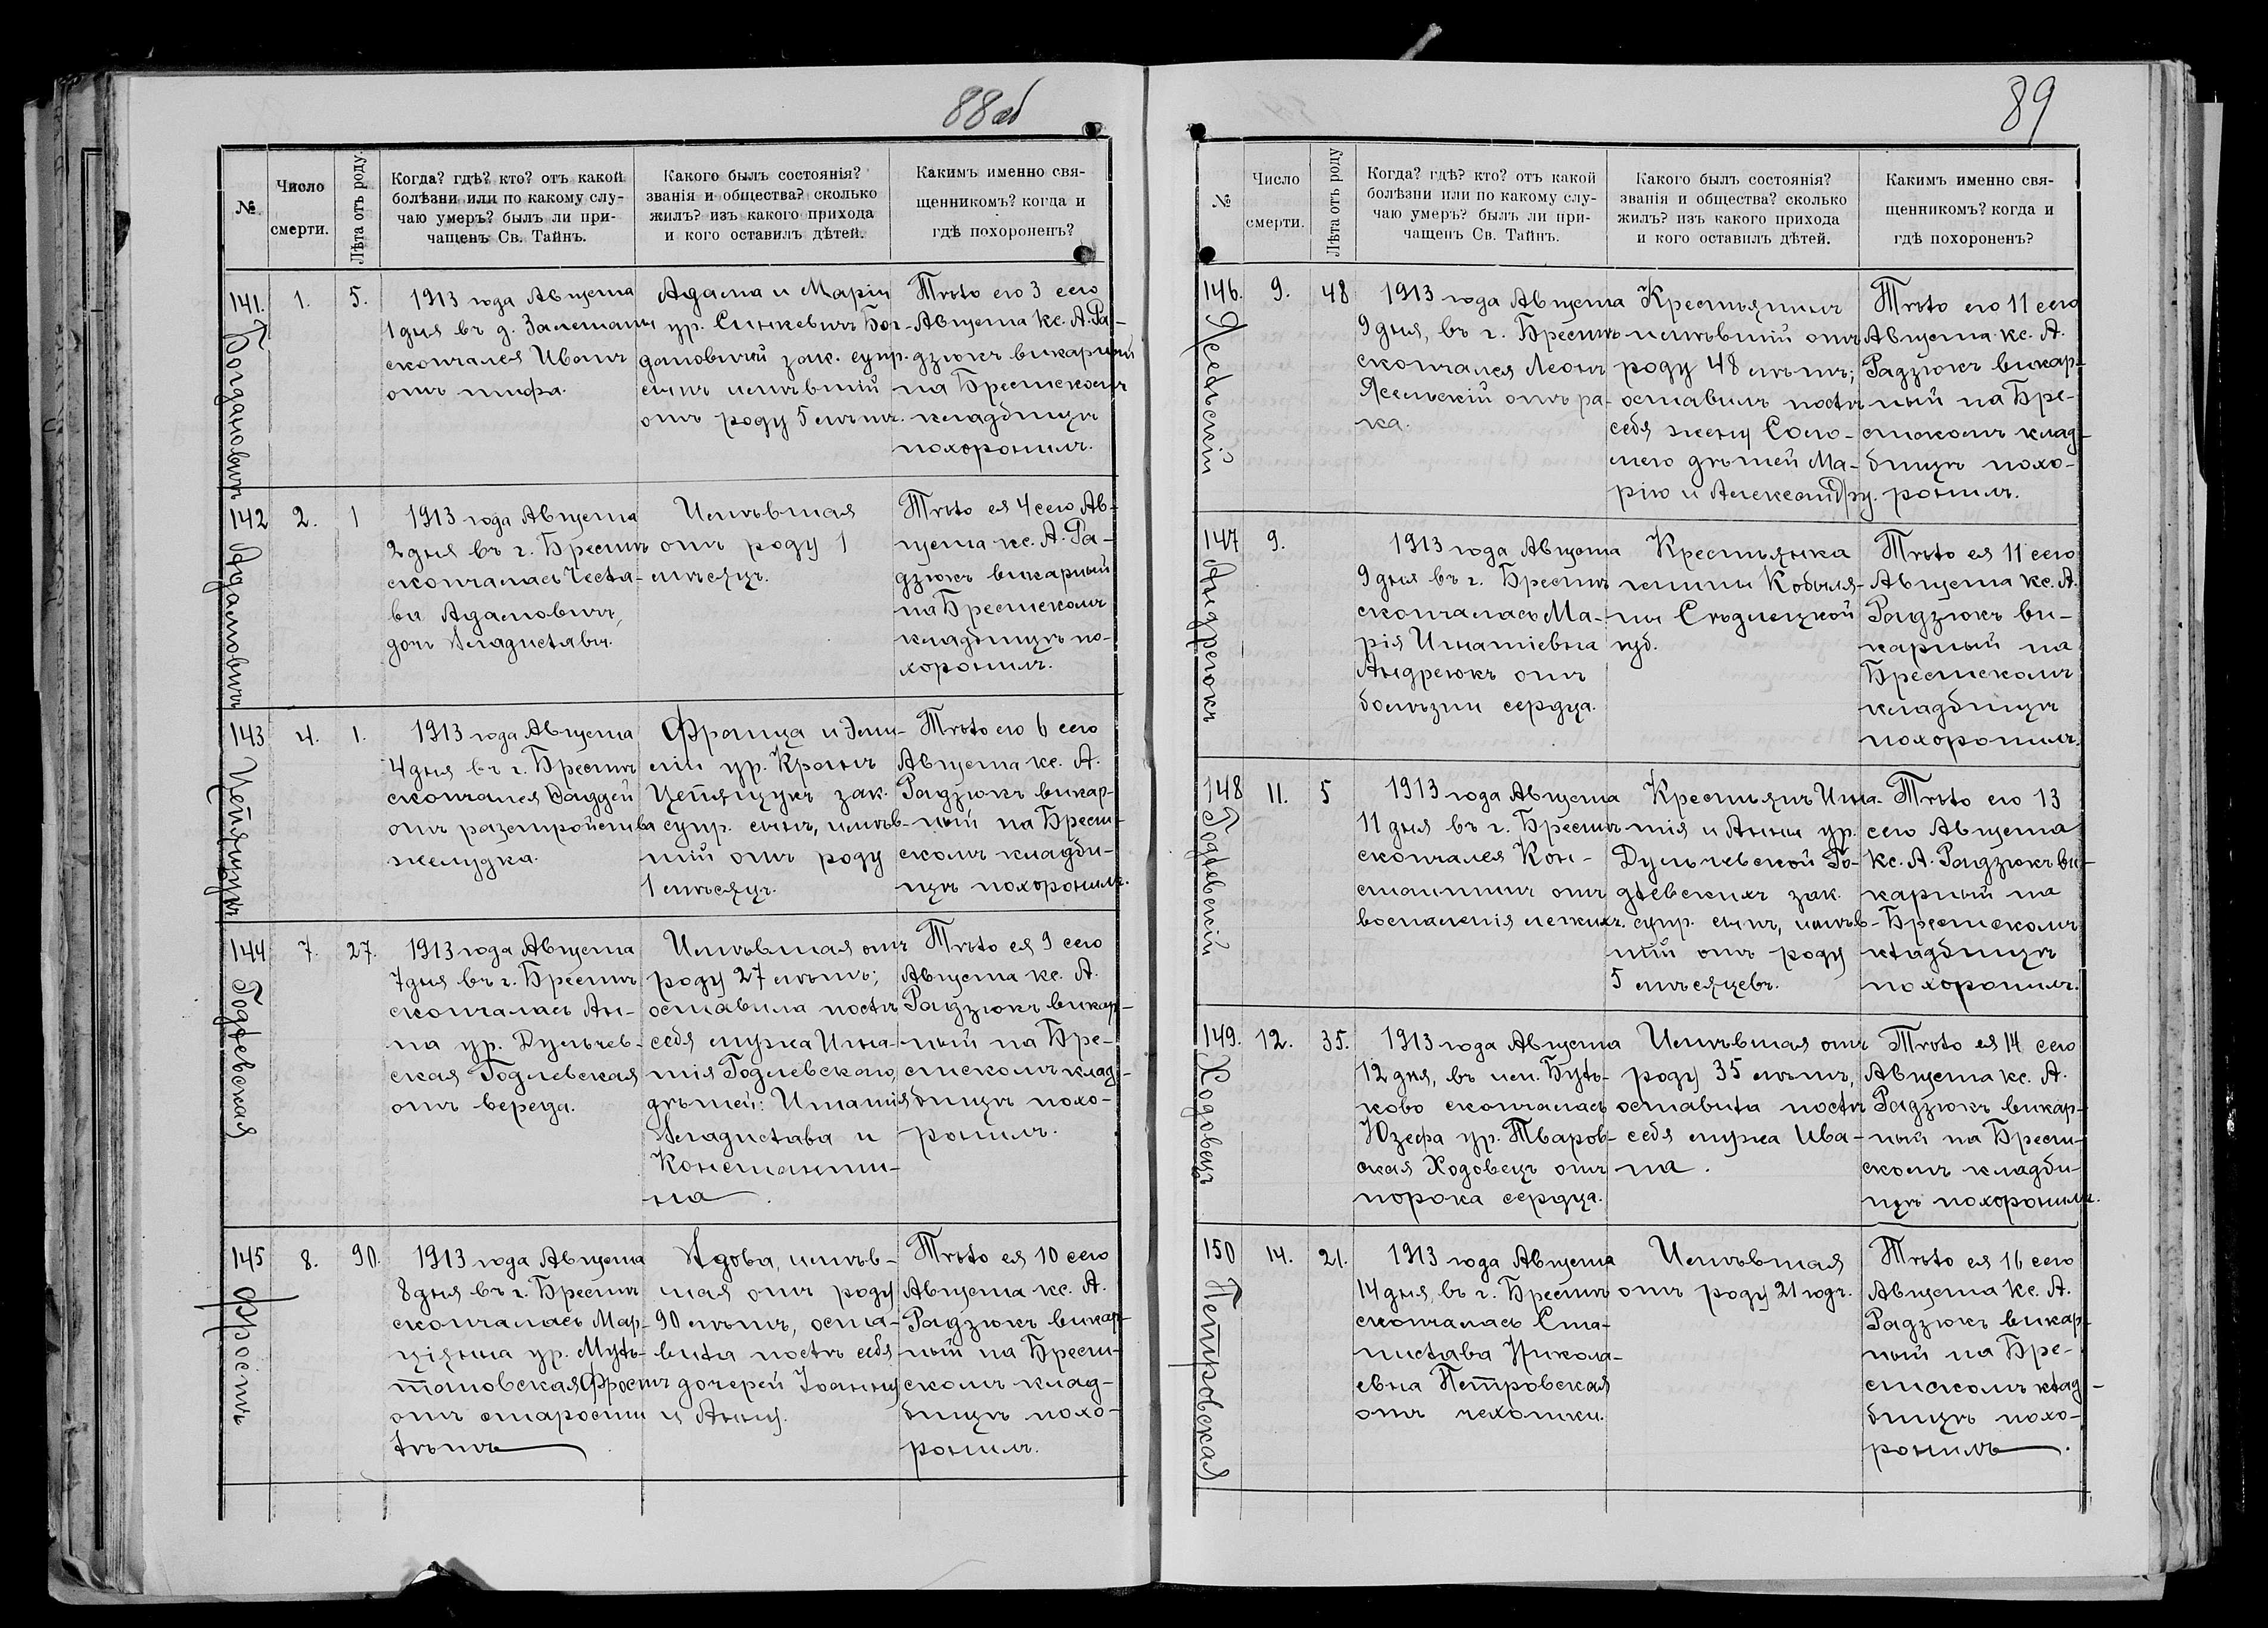 88 об
№
Число
смерти.
Лѣта отъ роду.
Когда? гдѣ? кто? отъ какой
болѣзни или по какому слу-
чаю умеръ? былъ ли при-
чащенъ Св. Тайнъ.
Какого былъ состоянія?
званія и общества? сколько
жилъ? изъ какого прихода
и кого оставилъ дѣтей.
Какимъ именно свя-
щенникомъ? когда и
гдѣ похороненъ?
141.
Богдановичъ
1.
5.
1913 года Августа
1 дня въ д.
скончался Иванъ
отъ тифа.
Адама и Маріи
ур. Синкевичъ Бог-
дановичей зак. супр.
сынъ имѣвшій
отъ роду 5 лѣтъ.
Тѣло его 3 сего
Августа кс. А. Ра-
дзюкъ викарный
на Брестскомъ
кладбищѣ
похоронилъ.
142
Адамовичъ
2.
1
1913 года Августа
2 дня въ г. Брестѣ
скончалась Чесла-
ва Адамовичъ,
дочь Владиславы.
Имѣвшая
отъ роду 1
мѣсяцъ.
Тѣло ея 4 сего Ав-
густа кс. А. Ра-
дзюкъ викарный
на Брестскомъ
кладбищѣ по-
хоронилъ.
143
Цепящукъ
4.
1.
1913 года Августа
4 дня въ г. Брестѣ
скончался Фаддей
отъ разстройства
желудка.
Франца и Эми-
ліи ур. Кранъ
Цепящукъ зак.
супр. сынъ, имѣв-
шій отъ роду
1 мѣсяцъ.
Тѣло его 6 сего
Августа кс. А.
Радзюкъ викар-
ный на Брест-
скомъ кладби-
щѣ похоронилъ.
144
Годлевская
7.
27.
1913 года Августа
7 дня въ г. Брестѣ
скончалась Ан-
на ур. Дульчев-
ская Годлевская
отъ вереда.
Имѣвшая отъ
роду 27 лѣтъ;
оставила послѣ
себя мужа Игна-
тія Годлевскаго,
дѣтей: Игнатія
Владислава и
Константи-
на.
Тѣло ея 9 сего
Августа кс. А.
Радзюкъ викар-
ный на Бре-
стскомъ клад-
бищѣ похо-
ронилъ.
145
Фростъ
8.
90.
1913 года Августа
8 дня въ г. Брестѣ
скончалась Мар-
ціянна ур. Муль-
тановская Фростъ
отъ старости
лѣтъ.
Вдова, имѣв-
шая отъ роду
90 лѣтъ, оста-
вила послѣ себя
дочерей Іоанну
и Анну.
Тѣло ея 10 сего
Августа кс. А.
Радзюкъ викар-
ный на Брест-
скомъ клад-
бищѣ похо-
ронилъ.
89
№
Число
смерти.
Лѣта отъ роду
Когда? гдѣ? кто? отъ какой
болѣзни или по какому слу-
чаю умеръ? былъ ли при-
чащенъ Св. Тайнъ.
Какого былъ состоянія?
званія и общества? сколько
жилъ? изъ какого прихода
и кого оставилъ дѣтей.
Какимъ именно свя-
щенникомъ? когда и
гдѣ похороненъ?
146.
Ясельскій
9.
48
1913 года Августа
9 дня, въ г. Брестѣ
скончался Леонъ
Ясельскій отъ ра-
ка.
Крестьянинъ
имѣвшій отъ
роду 48 лѣтъ;
оставилъ послѣ
себя жену Соло-
мею дѣтей Ма-
рію и Александру.
Тѣло его 11 сего
Августа кс. А.
Радзюкъ викар-
ный на Бре-
стскомъ клад-
бищѣ похо-
ронилъ.
147
Андреюкъ
9.
1913 года Августа
9 дня въ г. Брестѣ
скончалась Ма-
рія Игнатіевна
Андреюкъ отъ
болѣзни сердца.
Крестьянка
гмины Кобыля-
ны Сѣдлецкой
губ.
Тѣло ея 11 сего
Августа кс. А.
Радзюкъ ви-
карный на
Брестскомъ
кладбищѣ
похоронилъ.
148
Годлевскій
11.
5
1913 года Августа
11 дня въ г. Брестѣ
скончался Кон-
стантинъ отъ
воспаленія легкихъ.
Крестьянъ Игна-
тія и Анны ур.
Дульчевской Го-
длевскихъ зак.
супр. сынъ, имѣв-
шій отъ роду
5 мѣсяцевъ.
Тѣло его 13
сего Августа
кс. А. Радзюкъ ви-
карный на
Брестскомъ
кладбищѣ
похоронилъ.
149.
Ходовецъ
12.
35.
1913 года Августа
12 дня, въ им. Буль-
ково скончалась
Юзефа ур. Тваров-
ская Ходовецъ отъ
порока сердца.
Имѣвшая отъ
роду 35 лѣтъ,
оставила послѣ
себя мужа Ива-
на.
Тѣло ея 14 сего
Августа кс. А.
Радзюкъ викар-
ный на Брест-
скомъ кладби-
щѣ похоронилъ.
150
Петровская
14.
21.
1913 года Августа
14 дня, въ г. Брестѣ
скончалась Ста-
нислава Никола-
евна Петровская
отъ чахотки.
Имѣвшая
отъ роду 21 годъ.
Тѣло ея 16 сего
Августа кс. А.
Радзюкъ викар-
ный на Бре-
стскомъ клад-
бищѣ похо-
ронилъ.